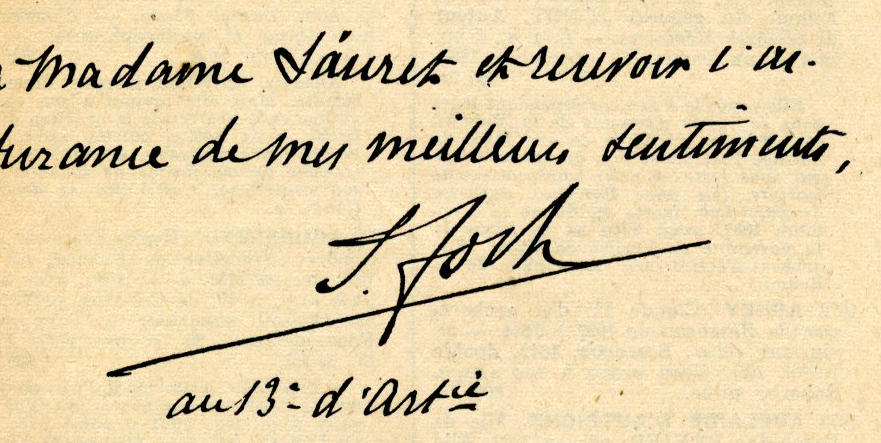 Madame Lauret et recevoir l'as-
surance de mes meilleurs sentiments,
F. Foch
au 13e d'Artie